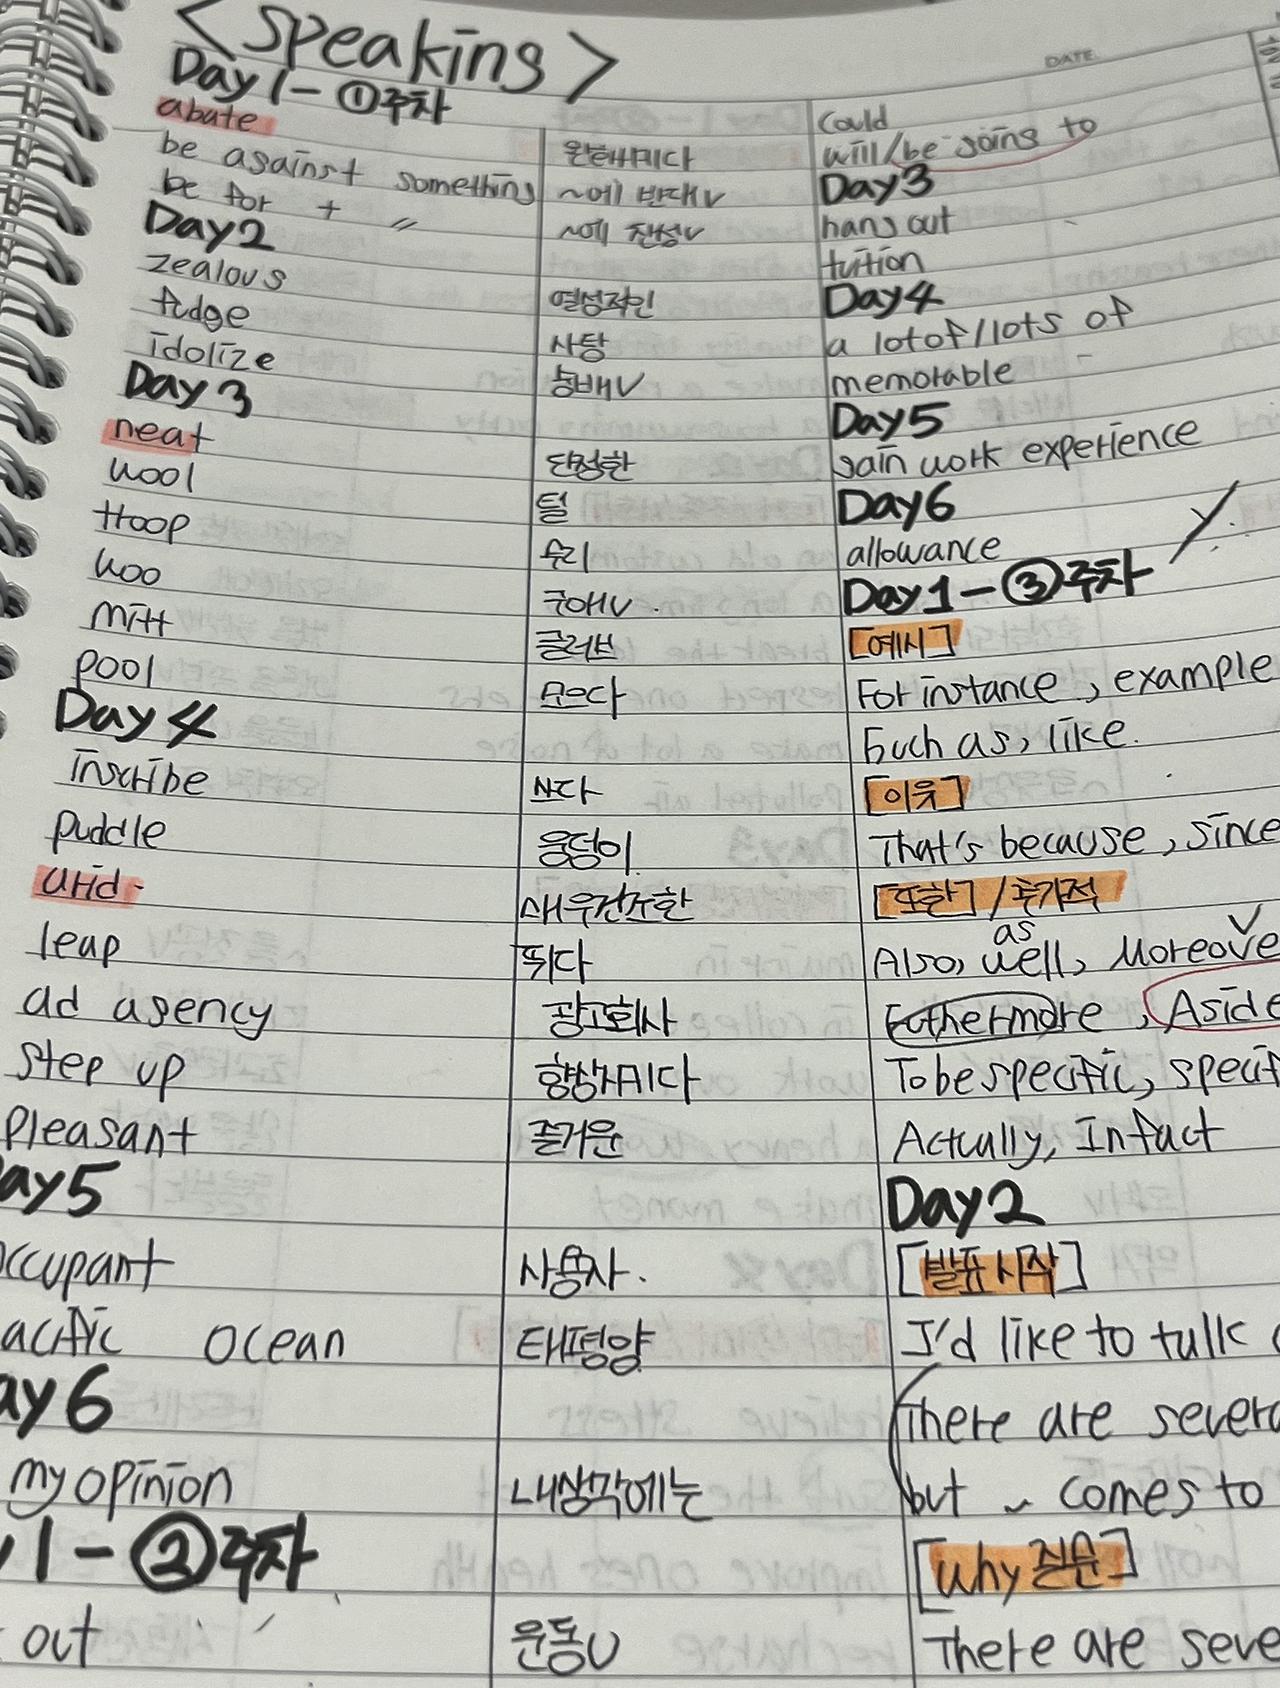 <Speaking>
Day 1 - ①주차
abate 완화시키다
be against + something ~에 반대V
be for + 〃 ~에 찬성V
Day2
zealous 열성적인
fudge 사탕
idolize 숭배V
Day 3
neat 단정한
wool 털
Hoop 무리
woo 구애V.
Mitt 글러브
pool 모으다
Day 4
inscribe 쓰다
puddle 웅덩이
arid- 매우건조한
leap 뛰다
ad agency 광고회사
step up 향상시키다
pleasant 즐거운
ay5
occupant 사용자.
acific ocean 태평양
ay 6
my opinion 내생각에는
1 - ②주차
out 운동U
DATE.
could
will/be going to
Day3
hang out
tuition
Day4
a lot of/lots of
memorable
Day5
gain work experience
Day6
allowance
Day1 - ③주차
[예시]
For instance, example
Such as, like.
[이유]
That's because, since
[또한] / 추가적
Also, as well, Moreove
Futhermore, Aside
To be specific, specif
Actually, In fact
Day2
[발표 시작]
I'd like to talk
There are severa
but ~ comes to
[Why 질문]
There are seve